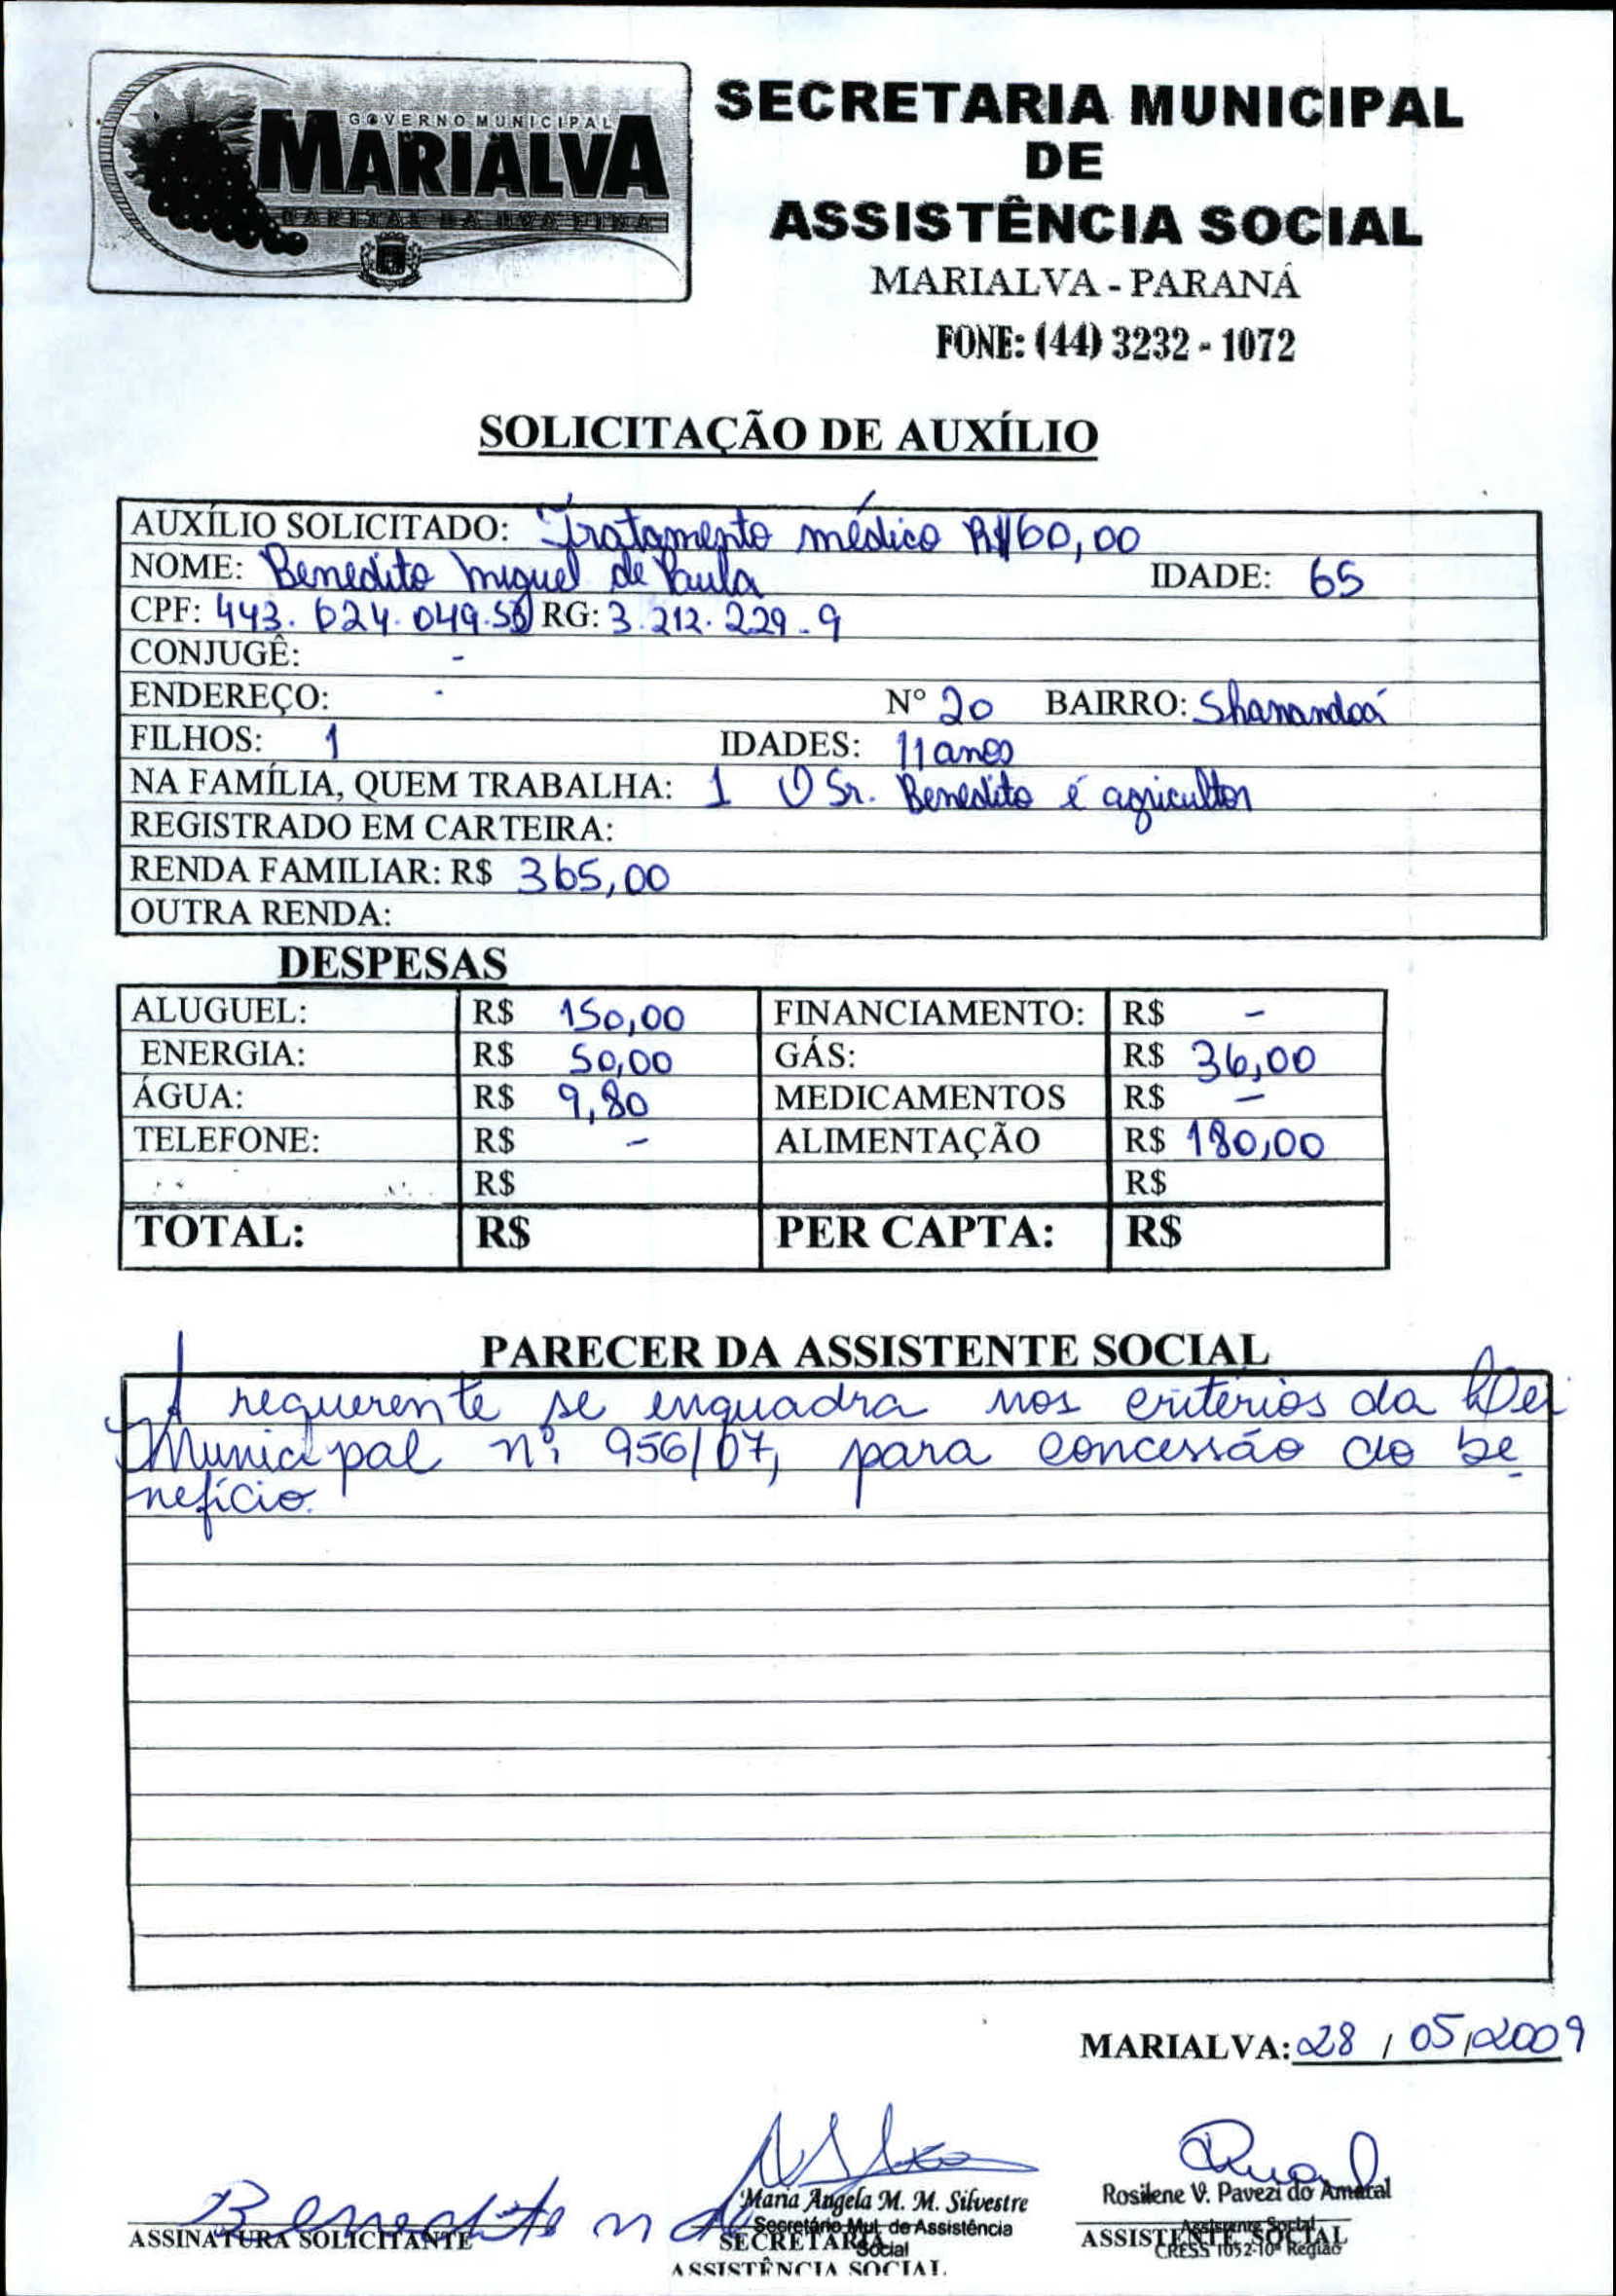 GOVERNO MUNICIPAL
MARIALVA
CAPITAL DA UVA FINA
SECRETARIA MUNICIPAL
DE
ASSISTÊNCIA SOCIAL
MARIALVA - PARANÁ
FONE: (44) 3232 - 1072
SOLICITAÇÃO DE AUXÍLIO
AUXÍLIO SOLICITADO: Tratamento médico R$60,00
NOME: Benedito miguel de Paula IDADE: 65
CPF: 443.624.049. RG: 3.212.229-9
CONJUGÊ: -
ENDEREÇO: - Nº 20 BAIRRO: Shanandoá
FILHOS: 1 IDADES: 11 anos
NA FAMÍLIA, QUEM TRABALHA: 1 O Sr. Benedito é agricultor
REGISTRADO EM CARTEIRA:
RENDA FAMILIAR: R$ 365,00
OUTRA RENDA:
DESPESAS
ALUGUEL: R$ 150,00 FINANCIAMENTO: R$ -
ENERGIA: R$ 50,00 GÁS: R$ 36,00
ÁGUA: R$ 9,80 MEDICAMENTOS R$ -
TELEFONE: R$ - ALIMENTAÇÃO R$ 180,00
R$ R$
TOTAL: R$ PER CAPTA: R$
PARECER DA ASSISTENTE SOCIAL
A requerente se enquadra nos critérios da Lei
Municipal nº 956/07, para concessão do be
nefício.
MARIALVA: 28 / 05/2009
Benedito m d
Maria Angela M. M. Silvestre
Secretário Mul. de Assistência
Social
Rosilene V. Pavezi do Amaral
Assistente Social
CRESS 1052-10ª Região
ASSINATURA SOLICITANTE
SECRETÁRIA
ASSISTÊNCIA SOCIAL
ASSISTENTE SOCIAL